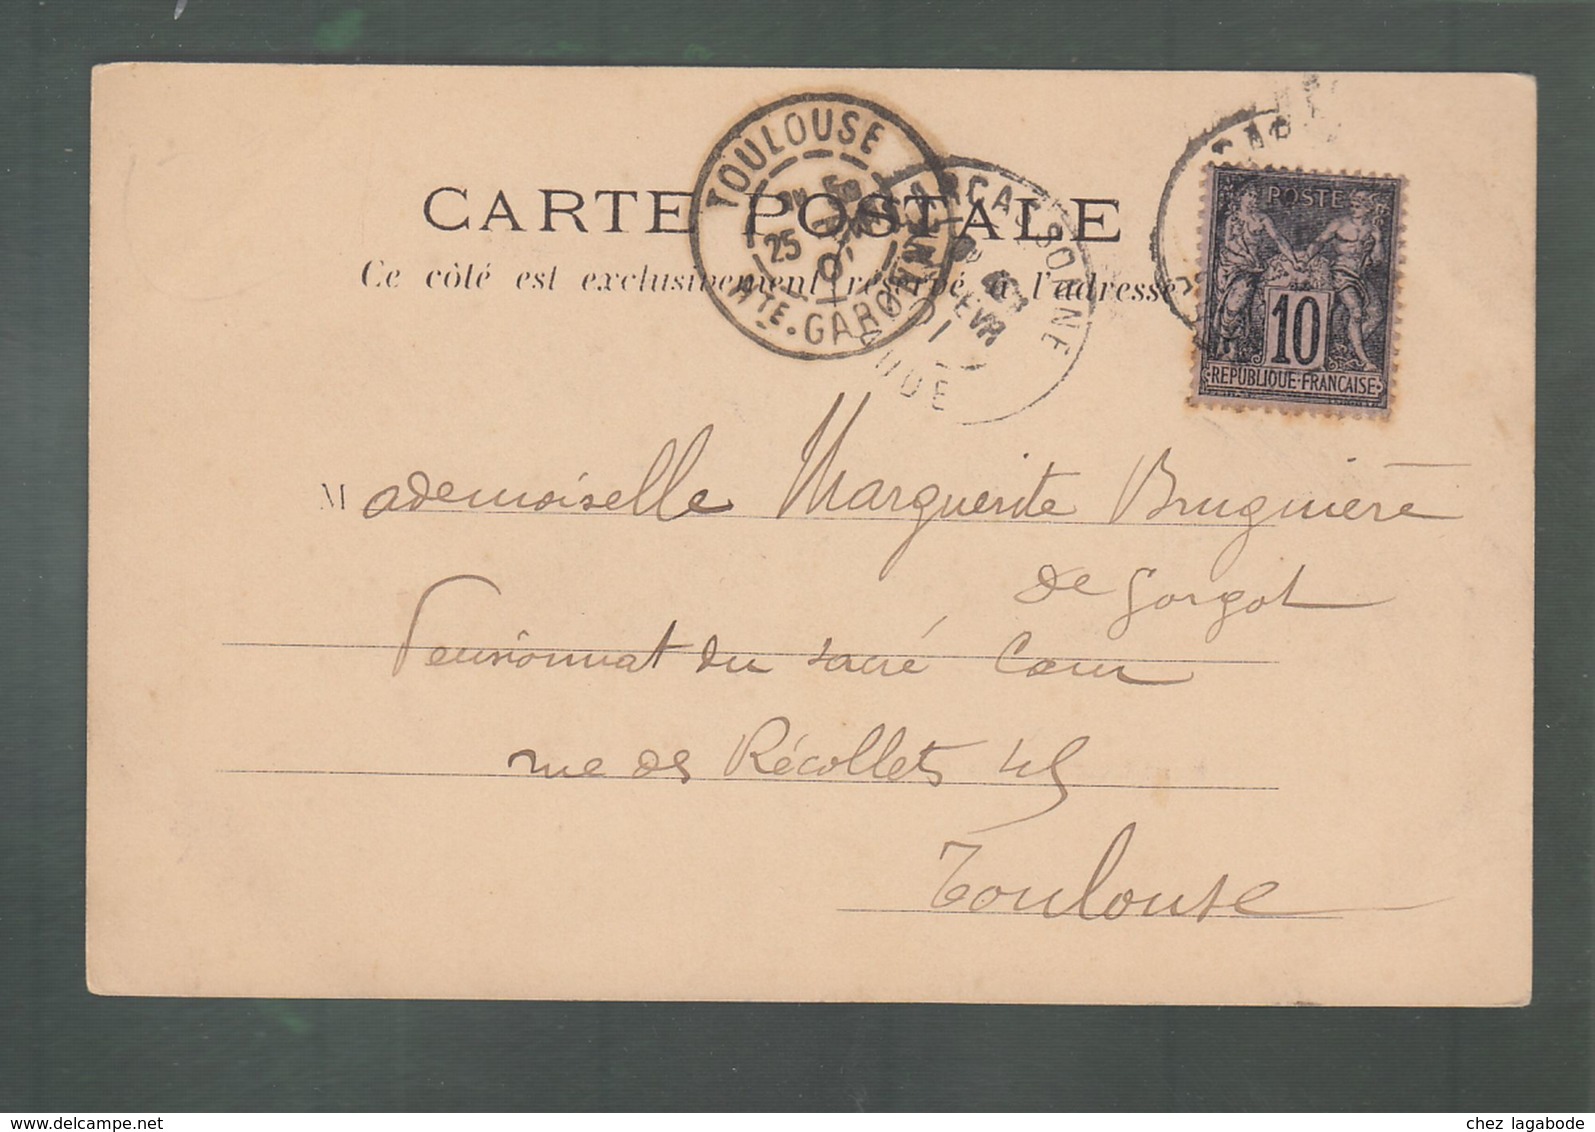 CARTE POSTALE
Ce côté est exclusivement réservé à l'adresse
TOULOUSE
25
Hte. GARONNE
CARCASSONNE
FEVR
AUDE
POSTES
10
·REPUBLIQUE·FRANÇAISE·
Mademoiselle Marguerite Bruguière
de Gorgot
Pensionnat du sacré Cœur
rue des Récollets 45
Toulouse
chez lagabode